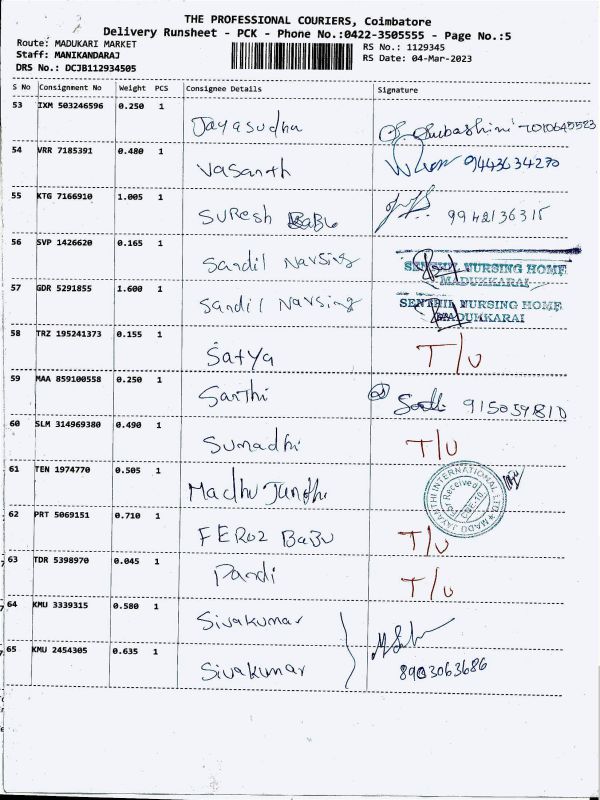 THE PROFESSIONAL COURIERS, Coimbatore
Delivery Runsheet - PCK - Phone No.:0422-3505555 - Page No.:5
Route: MADUKARI MARKET
Staff: MANIKANDARAJ
DRS No.: DCJB112934505
RS No.: 1129345
RS Date: 04-Mar-2023
S No Consignment No Weight PCS Consignee Details Signature
53 IXM 503246596 0.250 1
Jayasudha Subashini
54 VRR 7185391 0.480 1
Vasanth 9443634270
55 KTG 7166910 1.005 1
Suresh Babu 9942136315
56 SVP 1426620 0.165 1
Sandil Narsing SENTHIL NURSING HOME
MADUKKARAI
57 GDR 5291855 1.600 1
Sandil Narsing SENTHIL NURSING HOME
MADUKKARAI
58 TRZ 195241373 0.155 1
Satya T/U
59 MAA 859100558 0.250 1
Santhi 915059810
60 SLM 314969380 0.490 1
Sumadhi T/U
61 TEN 1974770 0.505 1
Madhu Jandhi MADU JAYANTHI INTERNATIONAL LTD.
Received
62 PRT 5069151 0.710 1
FEROZ BABU T/U
63 TDR 5398970 0.045 1
Pandi T/U
64 KMU 3339315 0.580 1
Sivakumar
65 KMU 2454305 0.635 1
Sivakumar 8903063686